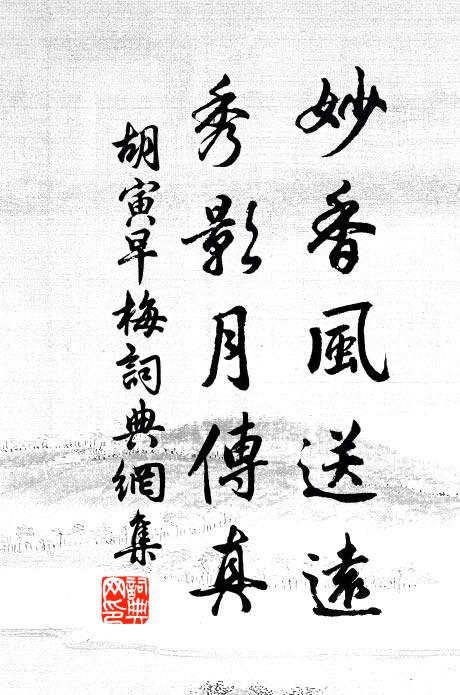 妙香風送遠
秀影月傳真
胡寅早梅詞典網集
詞典网印